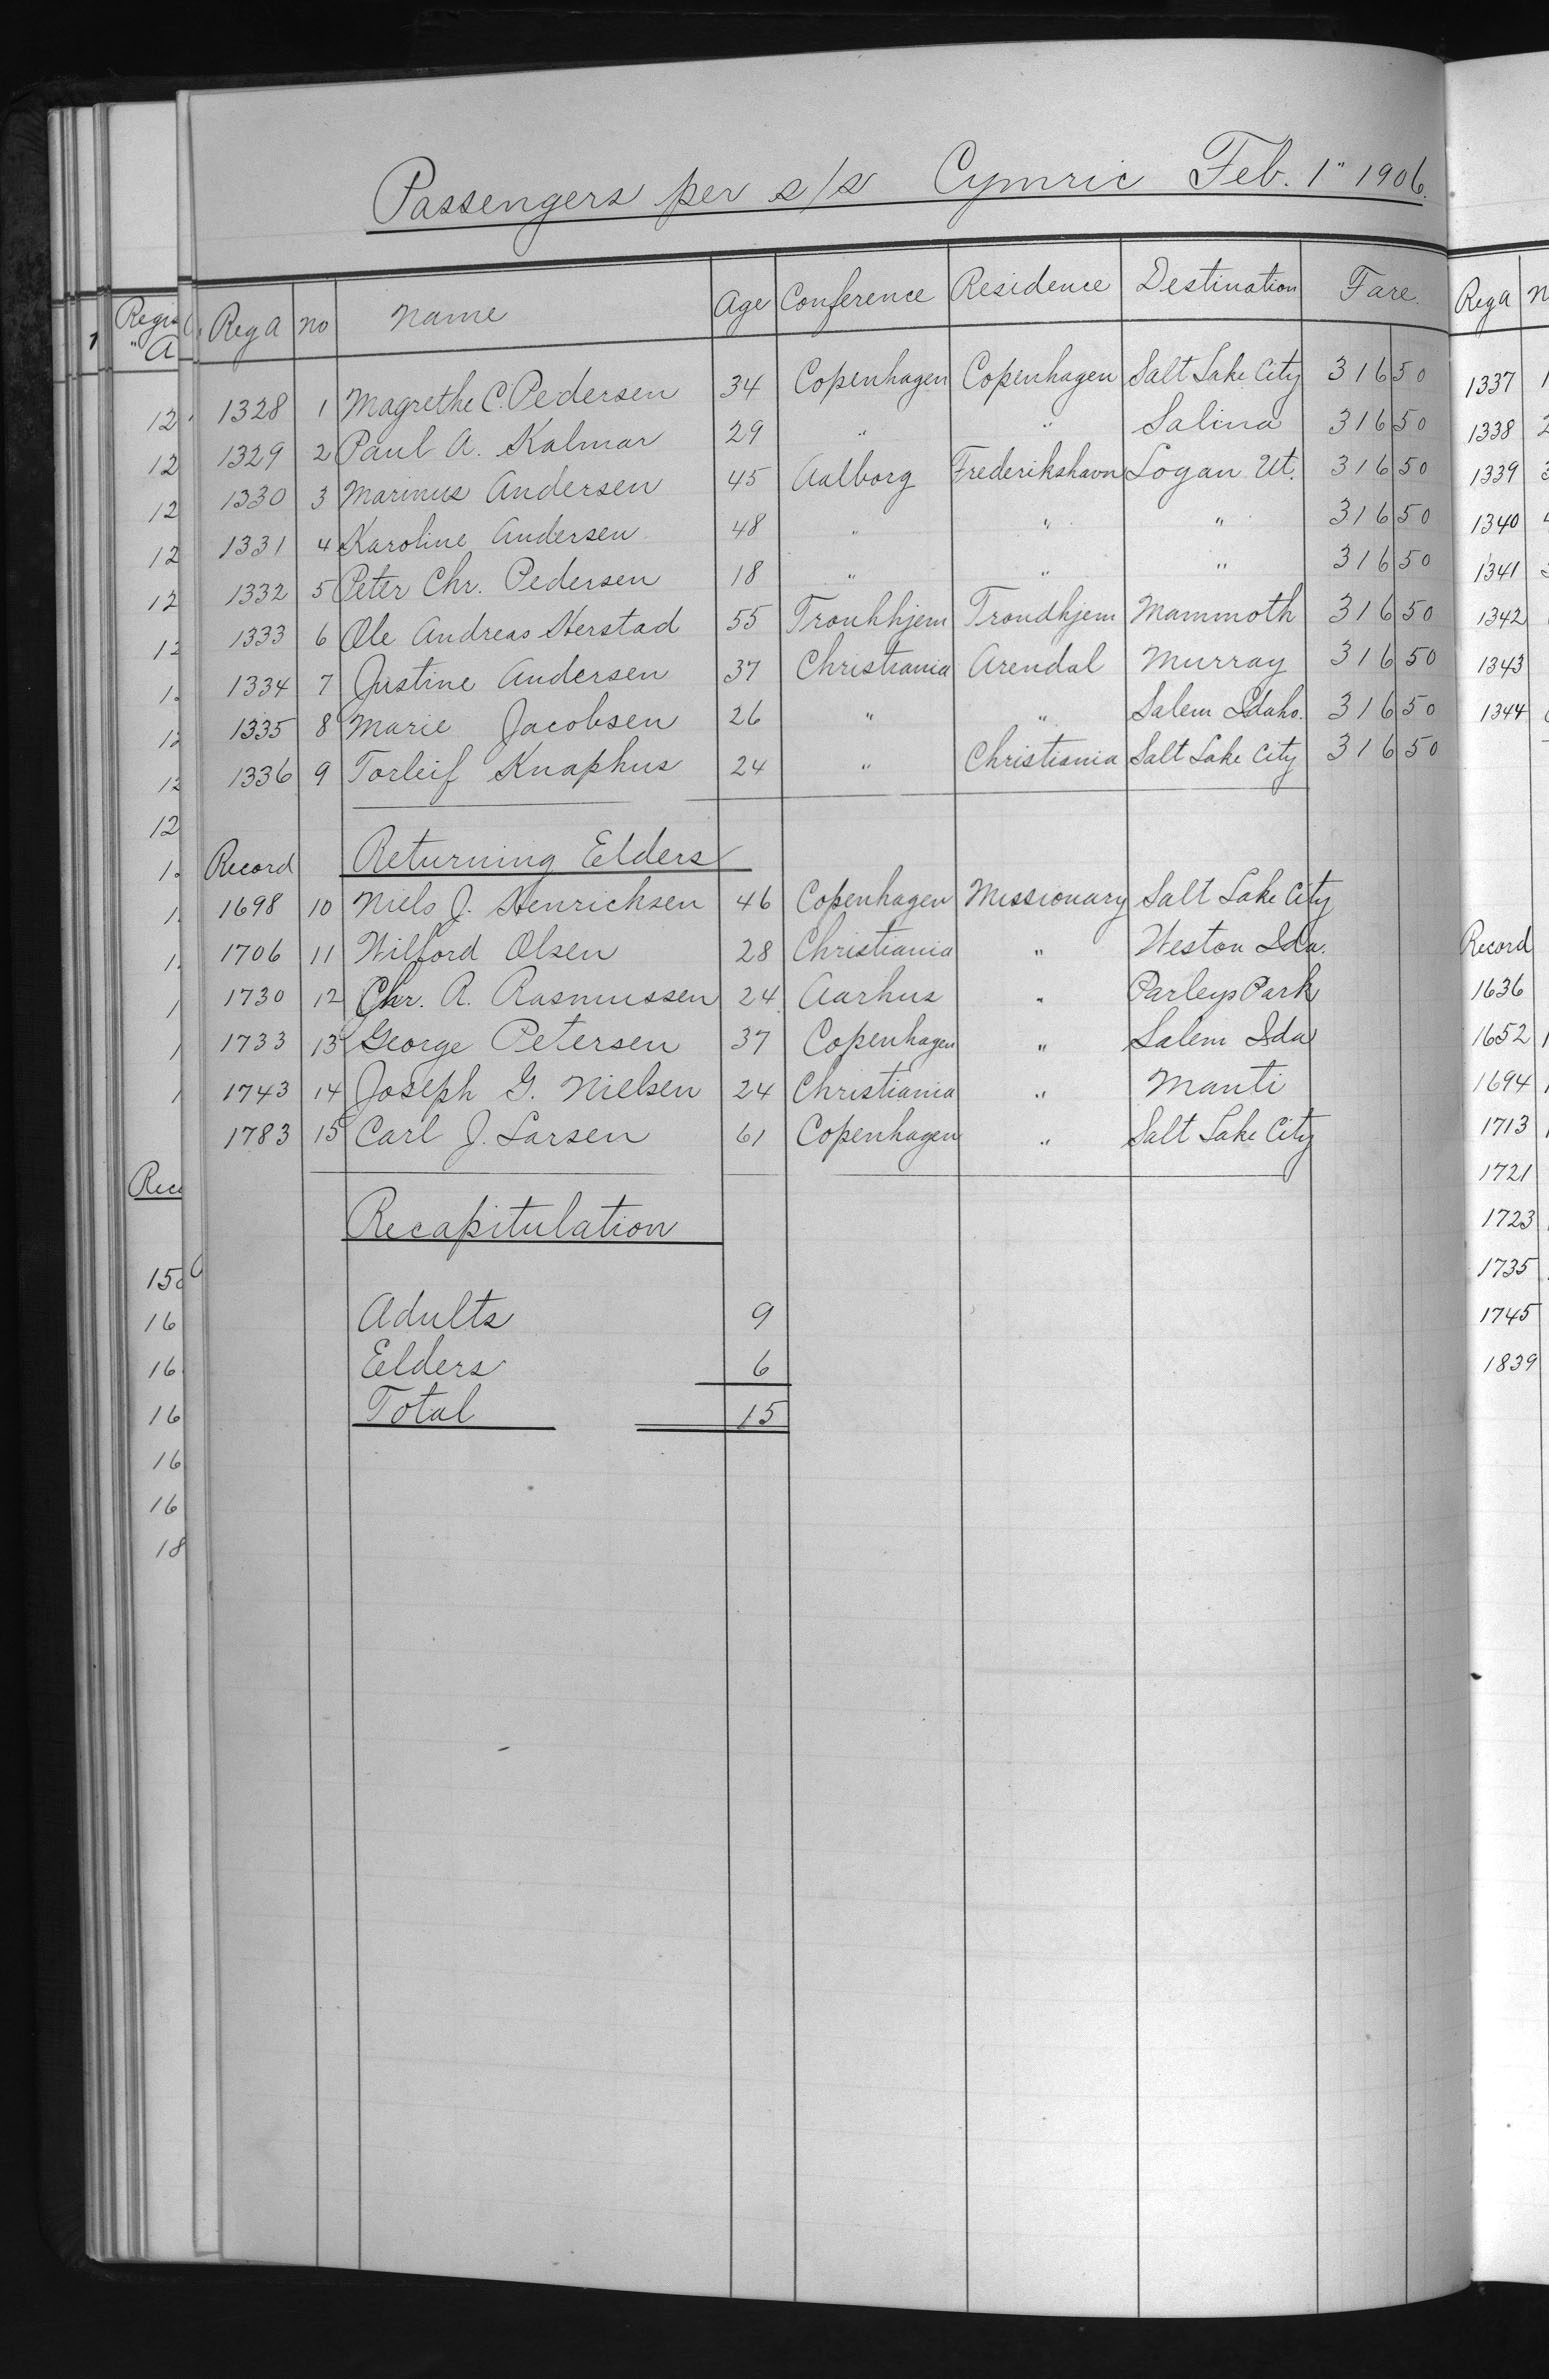 Passengers per s/s Cymric Feb. 1" 1906.
Reg A no Name Age Conference Residence Destination Fare.
1328 1 Magrethe C. Pedersen 34 Copenhagen Copenhagen Salt Lake City 316 50
1329 2 Paul A. Kalmar 29 " " Salina 316 50
1330 3 Marinus Andersen 45 Aalborg Frederikshavn Logan Ut. 316 50
1331 4 Karoline Andersen 48 " " " 316 50
1332 5 Peter Chr. Pedersen 18 " " " 316 50
1333 6 Ole Andreas Herstad 55 Tronhhjem Trondhjem Mammoth 316 50
1334 7 Justine Andersen 37 Christiania Arendal Murray 316 50
1335 8 Marie Jacobsen 26 " " Salem Idaho. 316 50
1336 9 Torleif Knaphus 24 " Christiania Salt Lake City 316 50
Record Returning Elders
1698 10 Niels J. Henricksen 46 Copenhagen Missionary Salt Lake City
1706 11 Wilford Olsen 28 Christiania " Weston Ida.
1730 12 Chr. A. Rasmussen 24 Aarhus " Parleys Park
1733 13 George Petersen 37 Copenhagen " Salem Ida
1743 14 Joseph G. Nielsen 24 Christiania " Manti
1783 15 Carl J. Larsen 61 Copenhagen " Salt Lake City
Recapitulation
Adults 9
Elders 6
Total 15
Reg A
1337
1338
1339
1340
1341
1342
1343
1344
Record
1636
1652
1694
1713
1721
1723
1735
1745
1839